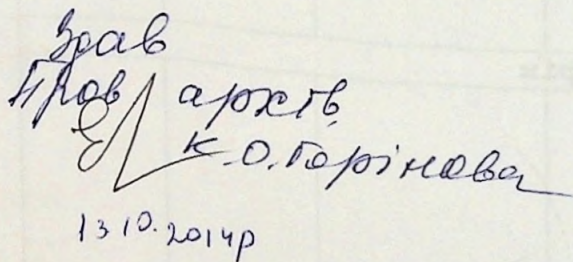 Здав
Пров архів
К.О.Горінова
13.10.2014р